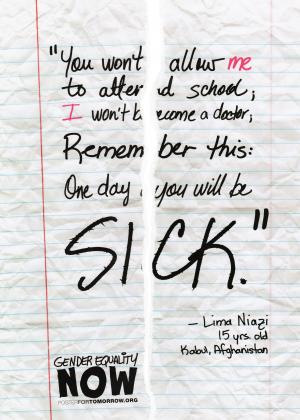 "You won't allow me
to attend school;
I won't become a doctor;
Remember this:
One day you will be
SICK."
— Lima Niazi
15 yrs. old
Kabul, Afghanistan
GENDER EQUALITY
NOW
POSTERFORTOMORROW.ORG